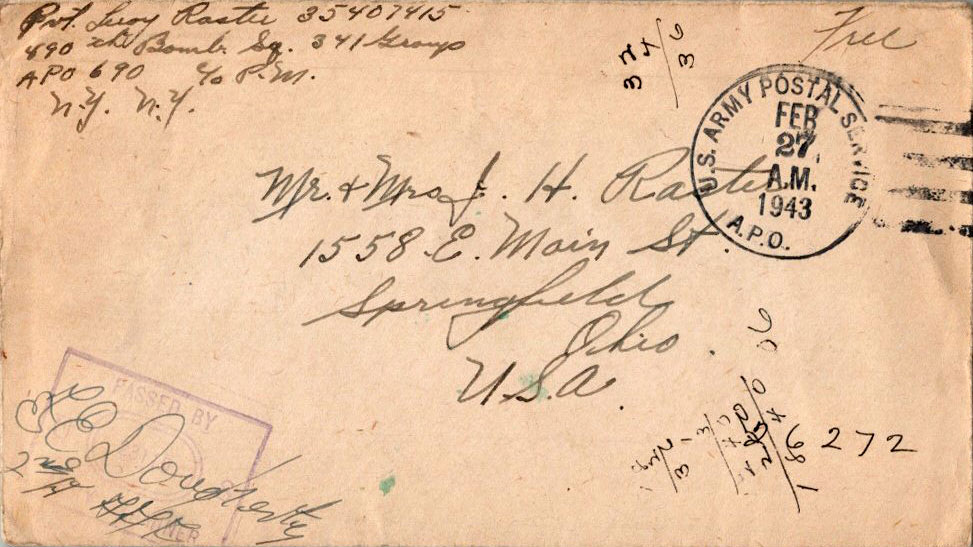 Pvt. Leroy Rastee 35407415
490 th Bomb. Sq. 341 Group
APO 690 c/o P.M.
N.Y. N.Y.
Free
U.S. ARMY POSTAL SERVICE
FEB
27
A.M.
1943
A.P.O.
Mr. & Mrs J. H. Raste
1558 E. Main St.
Springfield
Ohio.
U.S.A.
PASSED BY
E Dougherty
2nd Lt
6272